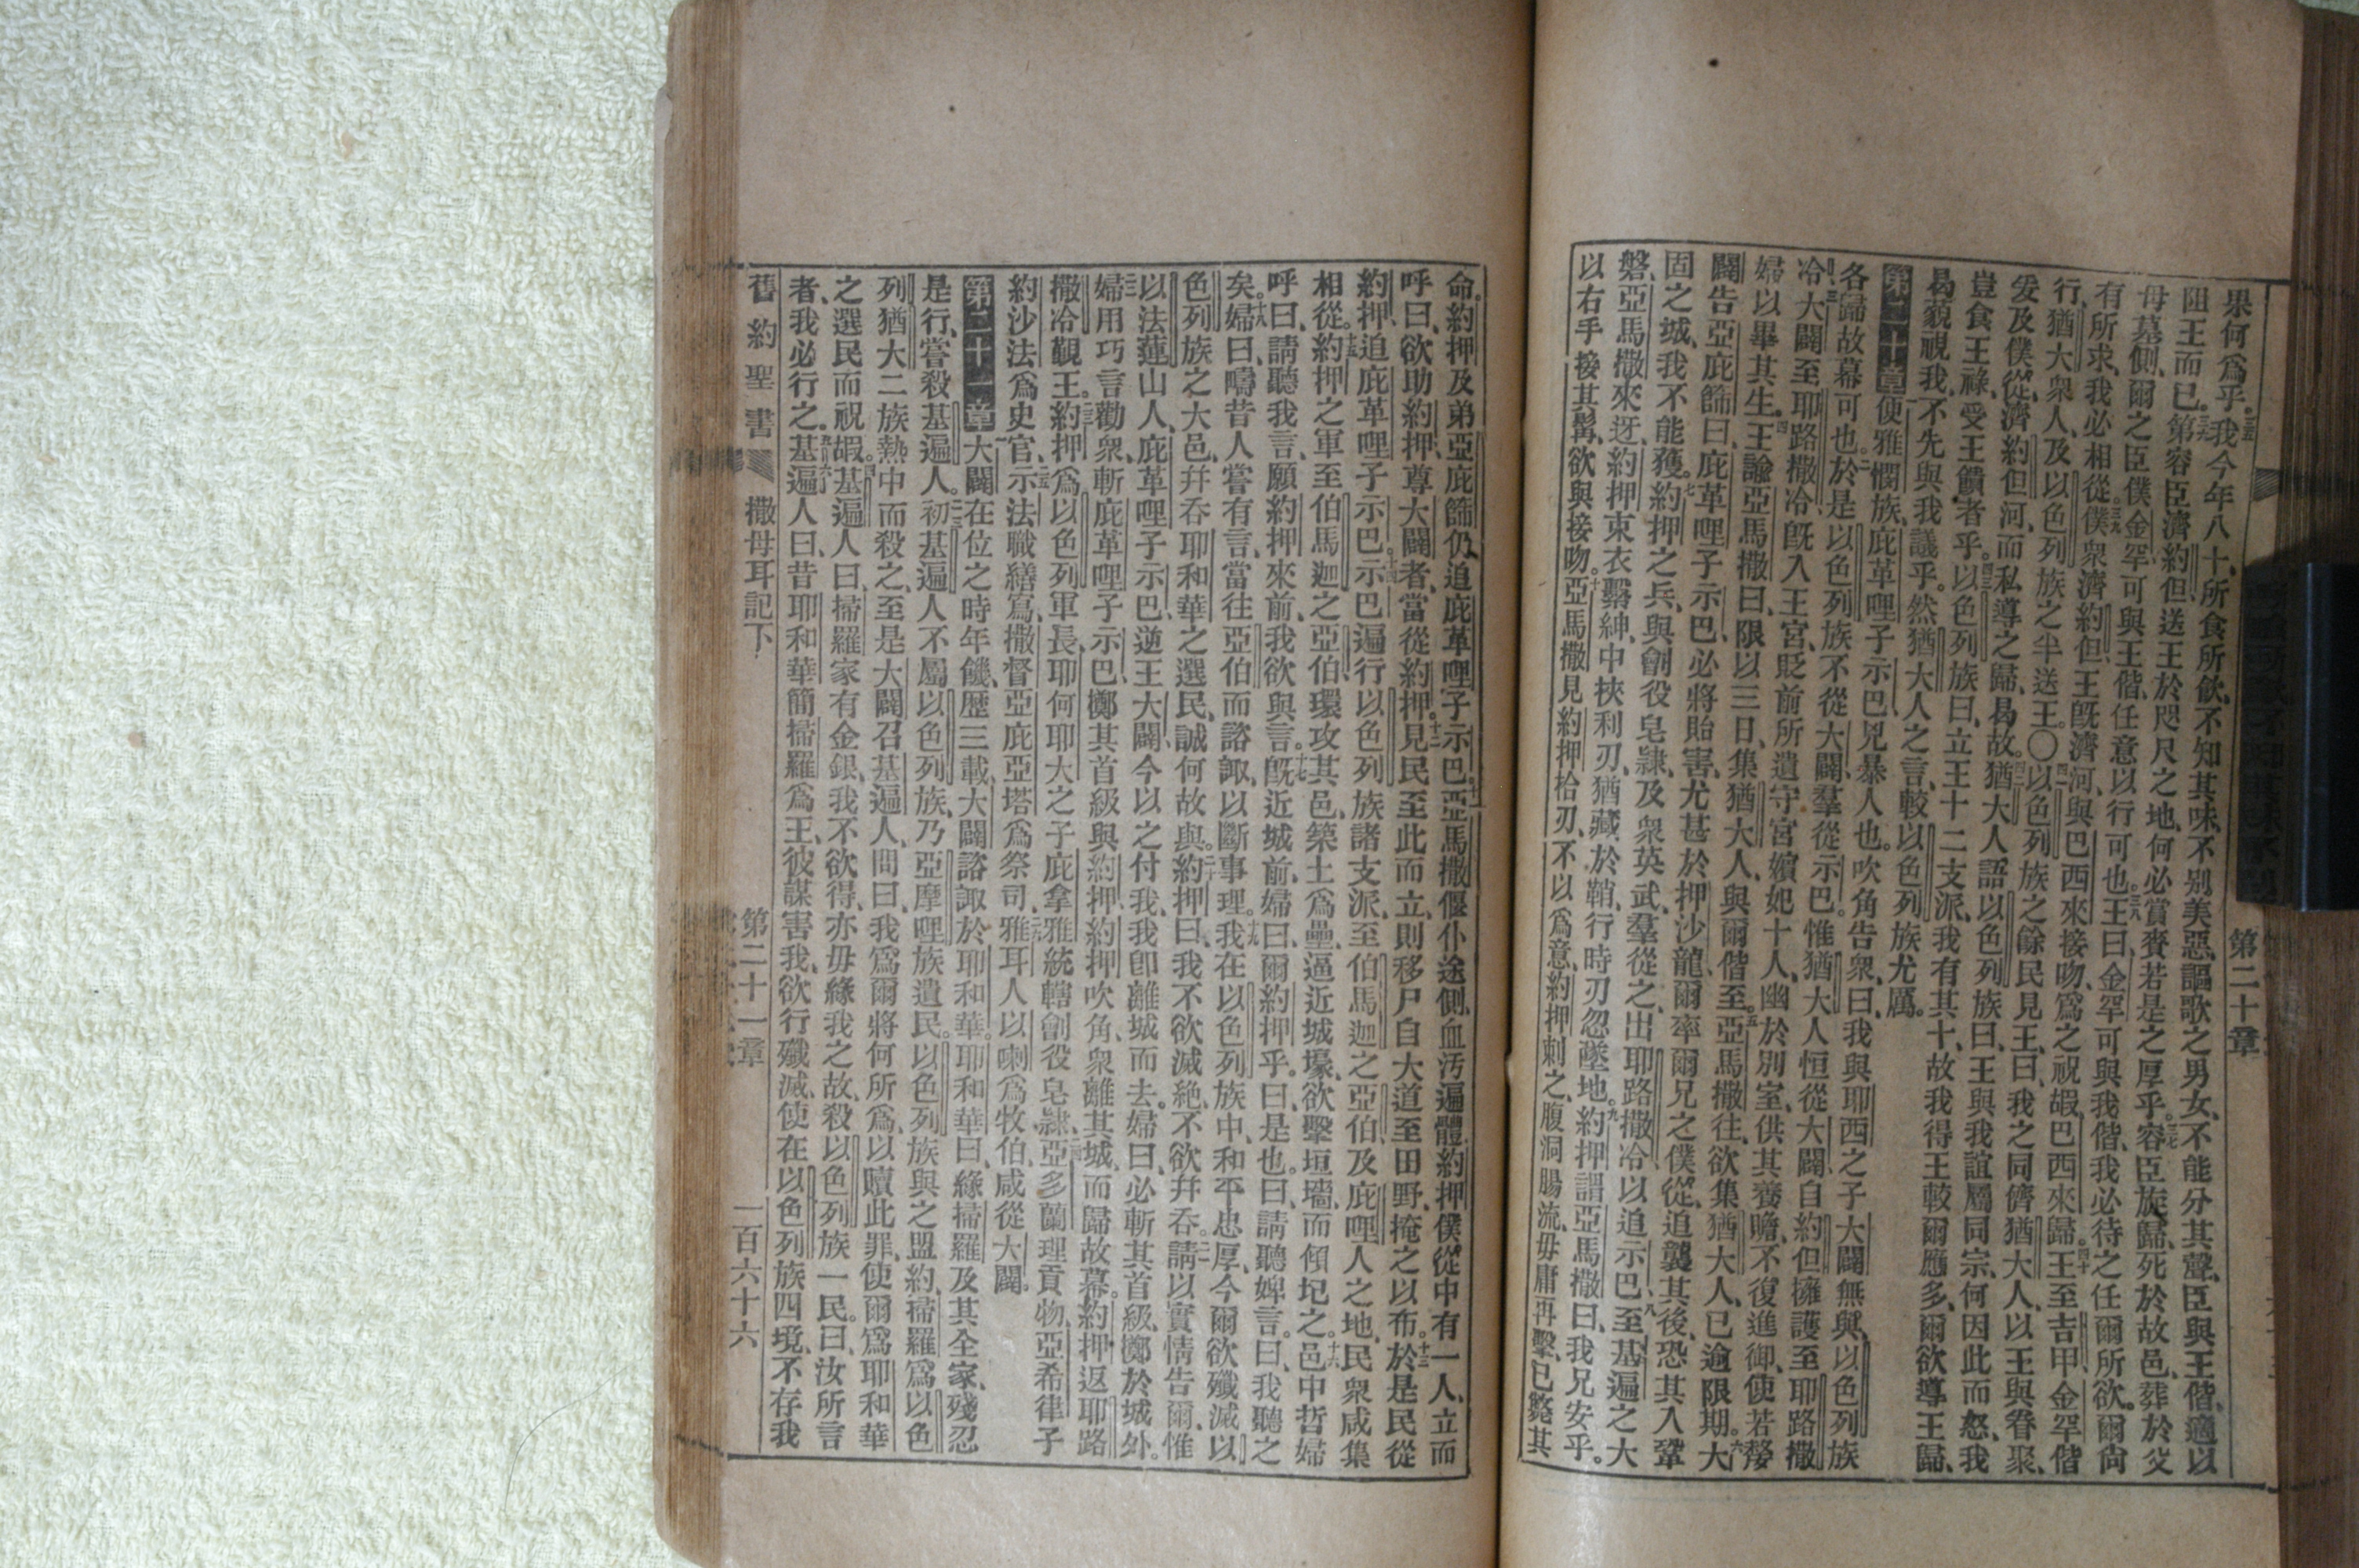 果何爲乎、三五我今年八十、所食所飲、不知其味、不别美惡、謳歌之男女、不能分其聲、臣與王偕、適以
阻王而已。三六第容臣濟約但、送王於咫尺之地、何必賞賚若是之厚乎。三七容臣旋歸、死於故邑、葬於父
母墓側、爾之臣僕金罕、可與王偕、任意以行可也。三八王曰、金罕可與我偕、我必待之、任爾所欲、爾尙
有所求、我必相從。三九僕衆濟約但、王旣濟河、與巴西來接吻、爲之祝嘏、巴西來歸。四十王至吉甲、金罕偕
行、猶大衆人、及以色列族之半送王。〇四一以色列族之餘民見王、曰、我之同儕猶大人、以王與眷聚、
爰及僕從、濟約但河、而私導之歸、曷故。四二猶大人語以色列族曰、王與我誼屬同宗、何因此而怒、我
豈食王祿、受王饋者乎。四三以色列族曰、立王十二支派、我有其十、故我得王較爾應多、爾欲導王歸、
曷藐視我、不先與我議乎。然猶大人之言、較以色列族尤厲。
第二十章 一使雅憫族、庇革哩子示巴、兇暴人也。吹角告衆、曰、我與耶西之子大闢無與、以色列族
各歸故幕可也。二於是以色列族不從大闢、羣從示巴。惟猶大人恒從大闢、自約但擁護至耶路撒
冷。三大闢至耶路撒冷、旣入王宮、貶前所遺守宮嬪妃十人、幽於別室、供其養贍、不復進御、使若嫠
婦、以畢其生。四王諭亞馬撒曰、限以三日、集猶大人、與爾偕至。五亞馬撒往、欲集猶大人、已逾限期。六大
闢告亞庇篩曰、庇革哩子示巴必將貽害、尤甚於押沙龍、爾率爾兄之僕從、追襲其後、恐其入鞏
固之城、我不能獲。七約押之兵、與劊役皂隸、及衆英武、羣從之、出耶路撒冷、以追示巴。八至基遍之大
磐、亞馬撒來迓、約押束衣繫紳、中挾利刃、猶藏於鞘、行時刃忽墜地。九約押謂亞馬撒曰、我兄安乎。
以右手接其髯、欲與接吻。十亞馬撒見約押拾刃、不以爲意、約押刺之腹、洞腸流、毋庸再擊、已斃其
命。約押及弟亞庇篩、仍追庇革哩子示巴。十一亞馬撒偃仆途側、血汚遍體、約押僕從中有一人、立而
呼曰、欲助約押、尊大闢者、當從約押。十二見民至此而立、則移尸自大道至田野、掩之以布。十三於是民從
約押、追庇革哩子示巴。十四示巴遍行以色列族諸支派、至伯馬迦之亞伯、及庇哩人之地、民衆咸集
相從。十五約押之軍至伯馬迦之亞伯、環攻其邑、築土爲壘、逼近城壕、欲擊垣墻、而傾圮之。十六邑中哲婦
呼曰、請聽我言、願約押來前、我欲與言。十七旣近城前、婦曰、爾約押乎。曰、是也。曰、請聽婢言。曰、我聽之
矣。十八婦曰、疇昔人嘗有言、當往亞伯而諮諏、以斷事理。十九我在以色列族中、和平忠厚、今爾欲殲滅以
色列族之大邑、幷吞耶和華之選民、誠何故與。二十約押曰、我不欲滅絕、不欲幷吞。二一請以實情告爾、惟
以法蓮山人、庇革哩子示巴、逆王大闢、今以之付我、我卽離城而去。婦曰、必斬其首級、擲於城外。
二二婦用巧言勸衆、斬庇革哩子示巴、擲其首級與約押、約押吹角、衆離其城、而歸故幕。約押返耶路
撒冷覲王。二三約押爲以色列軍長、耶何耶大之子庇拿雅統轄劊役皂隸、二四亞多蘭理貢物、亞希律子
約沙法爲史官、二五示法職繕寫、撒督亞庇亞塔爲祭司、二六雅耳人以喇爲牧伯、咸從大闢。
第二十一章 一大闢在位之時、年饑、歷三載、大闢諮諏於耶和華。耶和華曰、緣掃羅及其全家、殘忍
是行、嘗殺基遍人。二初基遍人不屬以色列族、乃亞摩哩族遺民。以色列族與之盟約、掃羅爲以色
列猶大二族、熱中而殺之、三至是大闢召基遍人、問曰、我爲爾將何所爲、以贖此罪、使爾爲耶和華
之選民而祝嘏。四基遍人曰、掃羅家有金銀、我不欲得、亦毋緣我之故、殺以色列族一民。曰、汝所言
者、我必行之。五基遍人曰、昔耶和華簡掃羅爲王、彼謀害我、欲行殲滅、使在以色列族四境、不存我
舊約聖書 撒母耳記下 第二十一章 二百六十六
第二十章